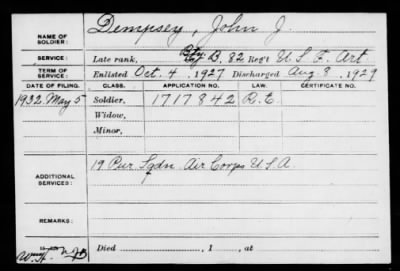 NAME OF SOLDIER: Dempsey, John J.
SERVICE: Late rank, Bty B. 82 Reg't U S F. Art.
TERM OF SERVICE: Enlisted Oct. 4, 1927 Discharged Aug. 8, 1929
DATE OF FILING. CLASS. APPLICATION NO. LAW. CERTIFICATE NO.
1932 May 5 Soldier, 1717842 R.E.
Widow,
Minor,
ADDITIONAL SERVICES: 19 Pur. Sqdn. Air Corps U.S.A.
REMARKS:
Died , 1 , at